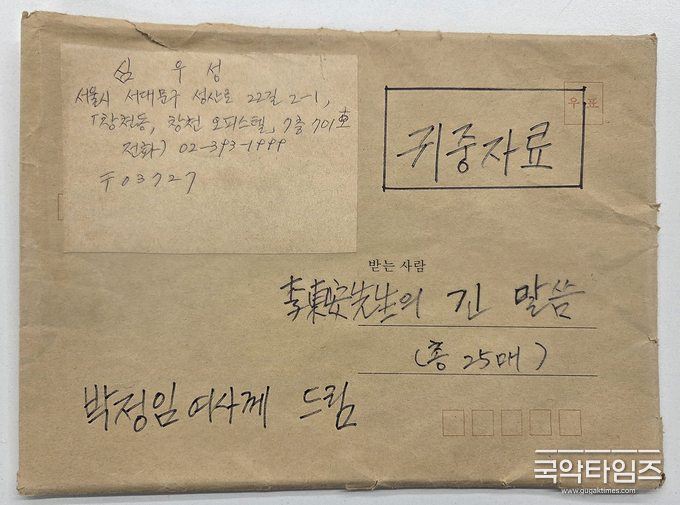 심 우 성
서울시 서대문구 성산로 22길 2-1,
(창천동, 창천 오피스텔, 7층 701호
전화) 02-393-1999
〒03727
우 표
귀중자료
받는 사람
李東安先生의 긴 말씀
(총 25매)
박정임 여사께 드림
국악타임즈
www.gugaktimes.com